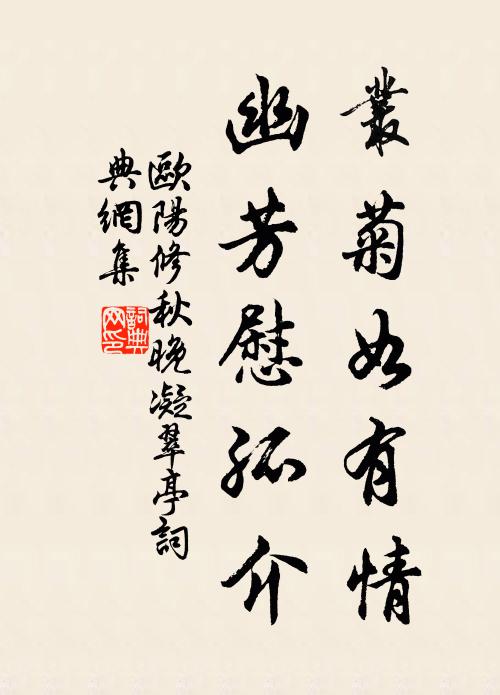 叢菊如有情
幽芳慰孤介
歐陽修秋晚凝翠亭詞
典網集
詞典
网印